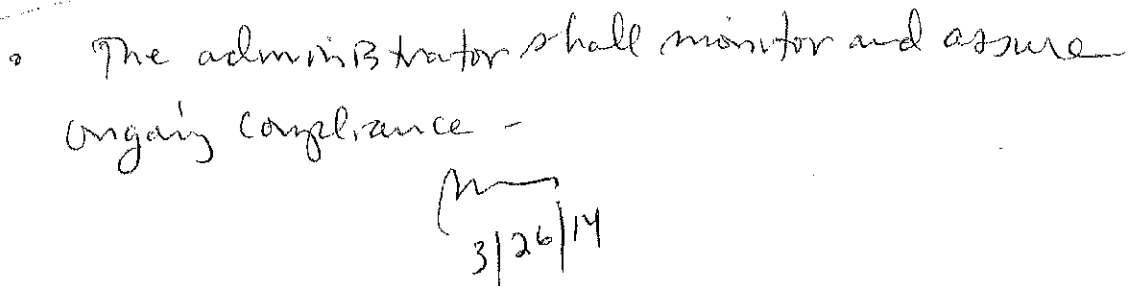 • The administrator shall monitor and assure
ongoing compliance -
3/26/14